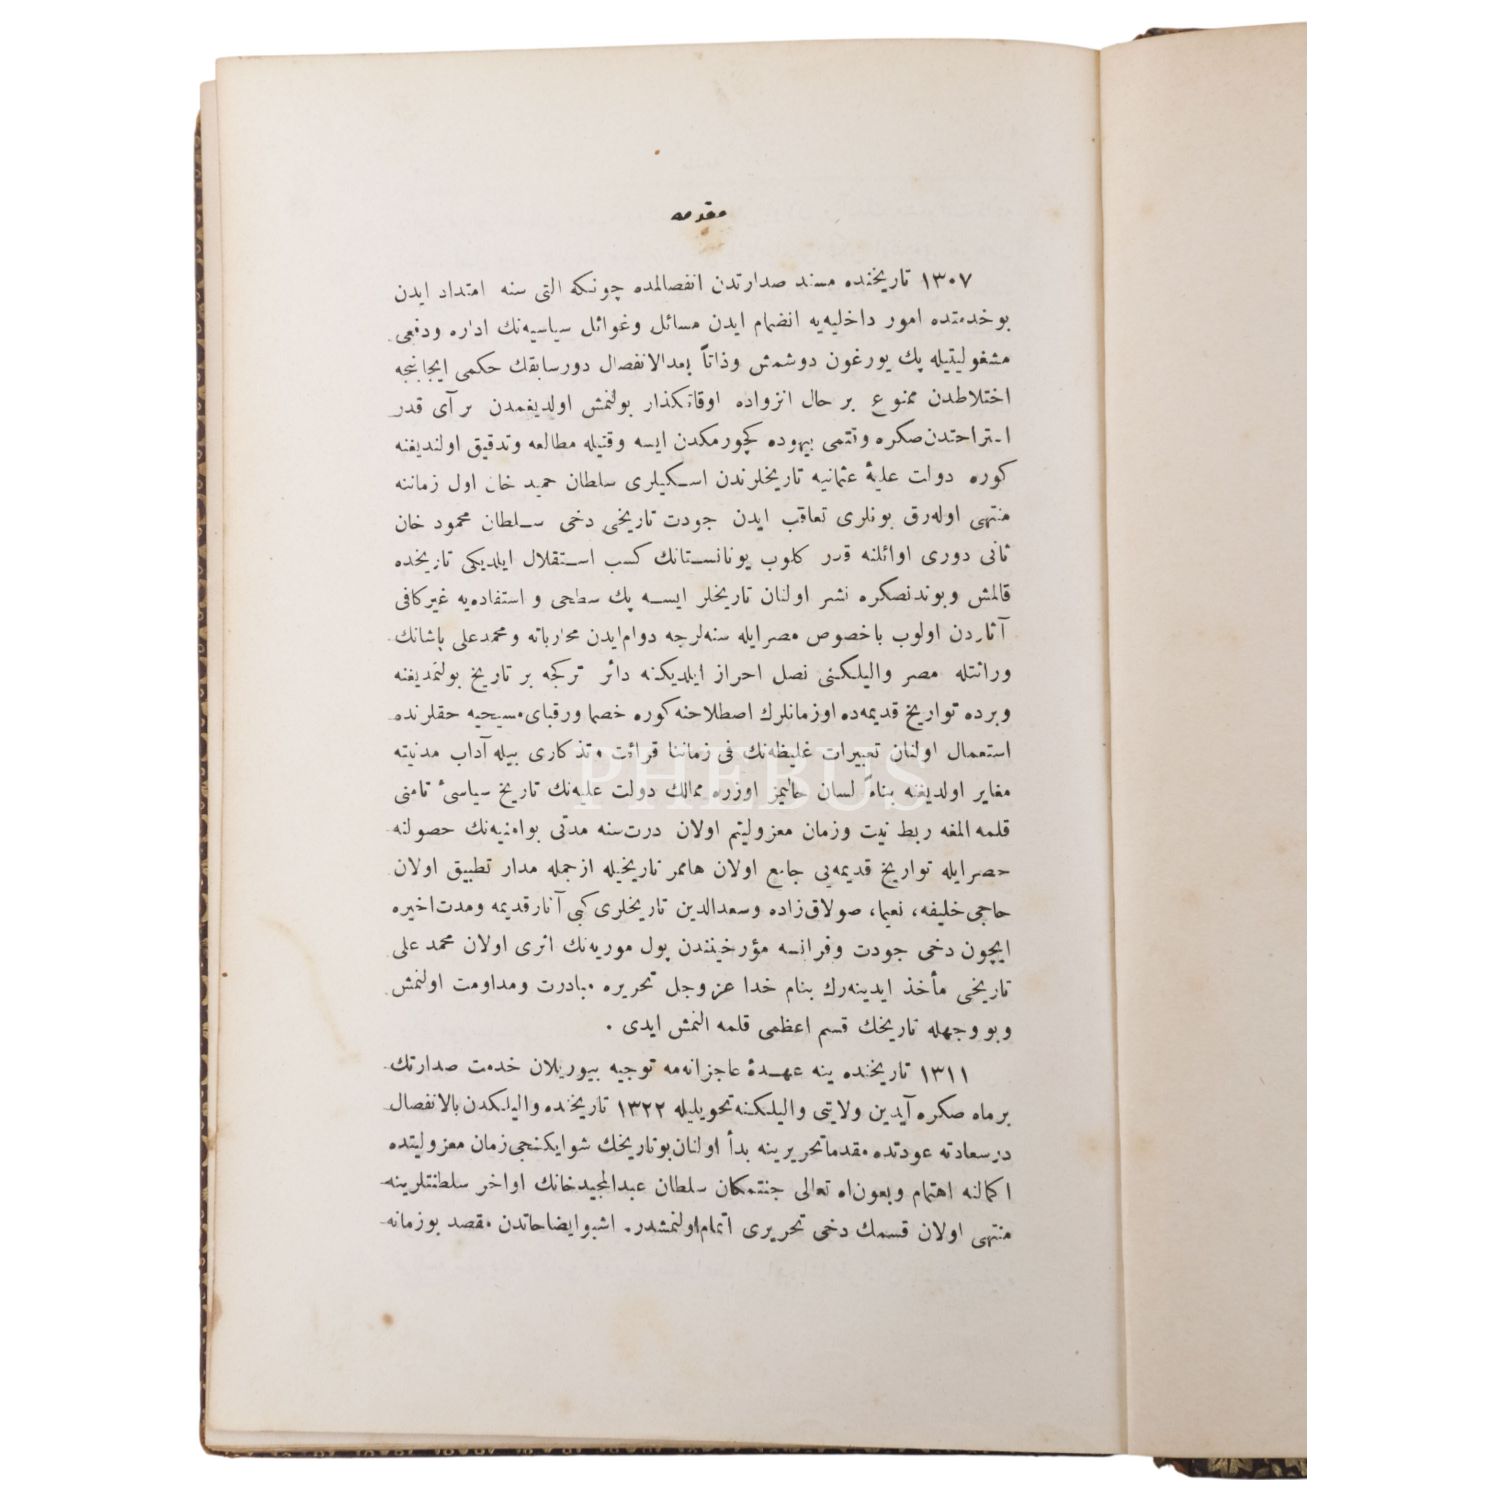 مقدمه
١٣٠٧ تاریخنده مسند صدارتدن انفصالمده چونکه التی سنه امتداد ایدن
بوخدمتده امور داخلیه‌یه انضمام ایدن مسائل وغوائل سیاسیه‌نك اداره ودفعی
مشغولیتیله پك یورغون دوشمش وذاتاً بعدالانفصال دورسابقك حکمی ایجابنجه
اختلاطدن ممنوع بر حال انزواده اوقاتکذار بولنمش اولدیغمدن بر آی قدر
استراحتدن صکره وقتمی بیهوده کچورمکدن ایسه وقتیله مطالعه وتدقیق اولندیغنه
کوره دولت علیۀ عثمانیه تاریخلرندن اسکیلری سلطان حمید خان اول زماننه
منتهی اوله‌رق بونلری تعاقب ایدن جودت تاریخی دخی سلطان محمود خان
ثانی دوری اوائلنه قدر کلوب یونانستانك کسب استقلال ایلدیکی تاریخده
قالمش وبوندنصکره نشر اولنان تاریخلر ایسه پك سطحی و استفاده‌یه غیرکافی
آثاردن اولوب باخصوص مصرایله سنه‌لرجه دوام‌ایدن محارباته ومحمدعلی پاشانك
وراثتله مصر والیلکنی نصل احراز ایلدیکنه دائر ترکجه بر تاریخ بولنمدیغنه
وبرده تواریخ قدیمه‌ده اوزمانلرك اصطلاحنه کوره خصما ورقبای مسیحیه حقلرنده
استعمال اولنان تعبیرات غلیظه‌نك فی زماننا قرائت وتذکاری بیله آداب مدنیته
مغایر اولدیغنه بناءً لسان حالیمز اوزره ممالك دولت علیه‌نك تاریخ سیاسیٔ تامنی
قلمه المغه ربط نیت وزمان معزولیتم اولان درت‌سنه مدتی بوامنیه‌نك حصولنه
حصرایله تواریخ قدیمه‌یی جامع اولان هاممر تاریخیله ازجمله مدار تطبیق اولان
حاجی خلیفه، نعیما، صولاق‌زاده وسعدالدین تاریخلری کبی آثارقدیمه ومدت‌اخیره
ایچون دخی جودت وفرانسه مؤرخیندن پول موریه‌نك اثری اولان محمد علی
تاریخی مأخذ ایدینه‌رك بنام خدا عز وجل تحریره مبادرت ومداومت اولنمش
وبو وجهله تاریخك قسم اعظمی قلمه النمش ایدی .
١٣١١ تاریخنده ینه عهدۀ عاجزانه‌مه توجیه بیوریلان خدمت صدارتك
برماه صکره آیدین ولایتی والیلکنه تحویلیله ١٣٢٢ تاریخنده والیلکدن بالانفصال
درسعادته عودتده مقدماتحریرینه بدأ اولنان‌بوتاریخك شوایکنجی زمان معزولیتده
اکمالنه اهتمام وبعون‌اه تعالی جنتمکان سلطان عبدالمجیدخانك اواخر سلطنتلرینه
منتهی اولان قسمك دخی تحریری اتمام‌اولنمشدر. اشبوایضاحاتدن مقصد بوزمانه
PHEBUS